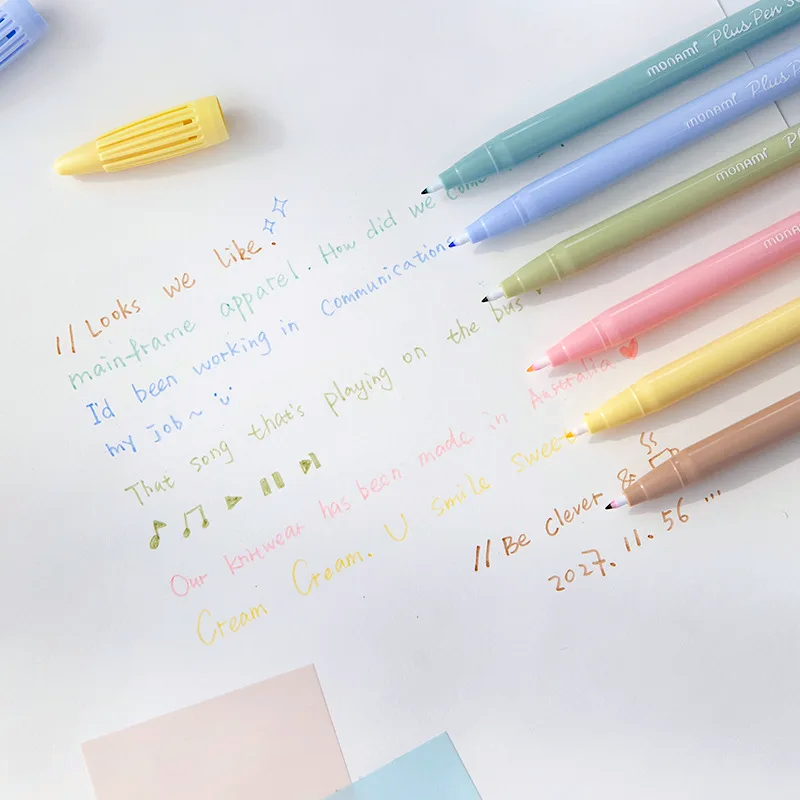 monami Plus Pen
monami Plus Pen
monami
monami
// Looks we like.
mainframe apparel. How did we come
I'd been working in Communications
my job~
That song that's playing on the bus
Our knitwear has been made in Australia
Cream Cream. U smile sweet
// Be clever &
2027.11.56 ...